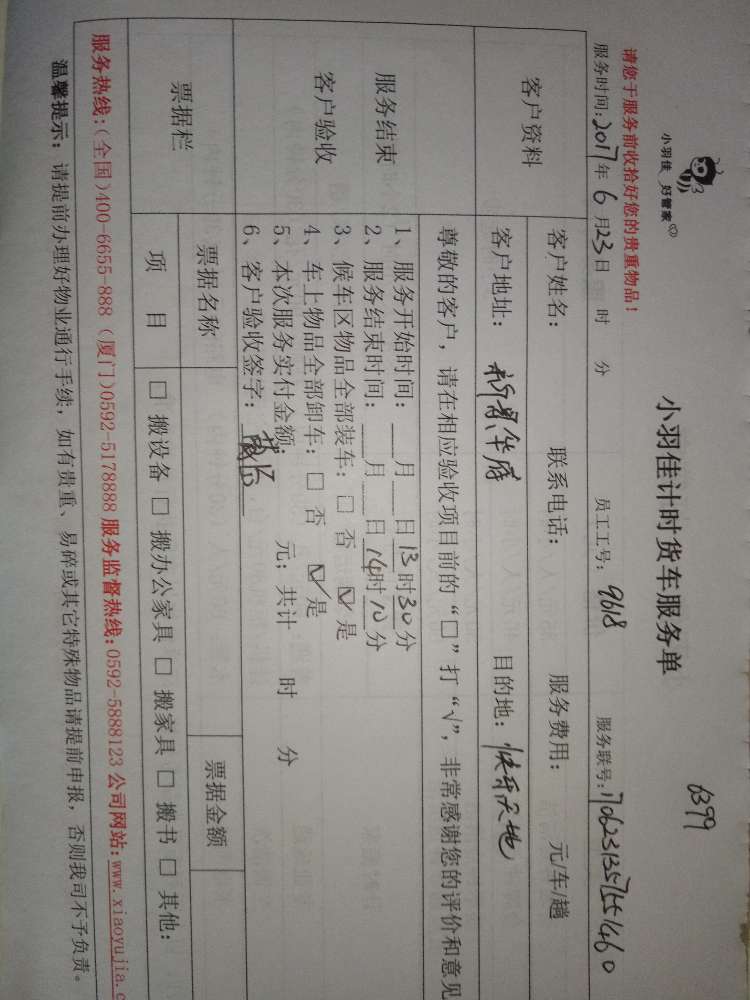 小羽佳 好管家
小羽佳计时货车服务单
6399
请您于服务前收拾好您的贵重物品！
服务时间：2017年6月23日 时 分 员工工号：9618 服务联号：1706231357551460
客户资料
客户姓名： 联系电话： 服务费用： 元/车/趟
客户地址：新景华府 目的地：快乐天地
服务结束
客户验收
尊敬的客户，请在相应验收项目前的“□”打“√”，非常感谢您的评价和意见
1、服务开始时间：__月__日13时30分
2、服务结束时间：__月__日14时10分
3、候车区物品全部装车：□ 否 ☑ 是
4、车上物品全部卸车：□ 否 ☑ 是
5、本次服务实付金额： 元；共计 时 分
6、客户验收签字：
票据栏
票据名称 票据金额
项 目 □ 搬设备 □ 搬办公家具 □ 搬家具 □ 搬书 □ 其他：
服务热线：（全国）400-6655-888（厦门）0592-5178888 服务监督热线：0592-5888123 公司网站：www.xiaoyujia.c
温馨提示：请提前办理好物业通行手续，如有贵重、易碎或其它特殊物品请提前申报，否则我司不予负责。